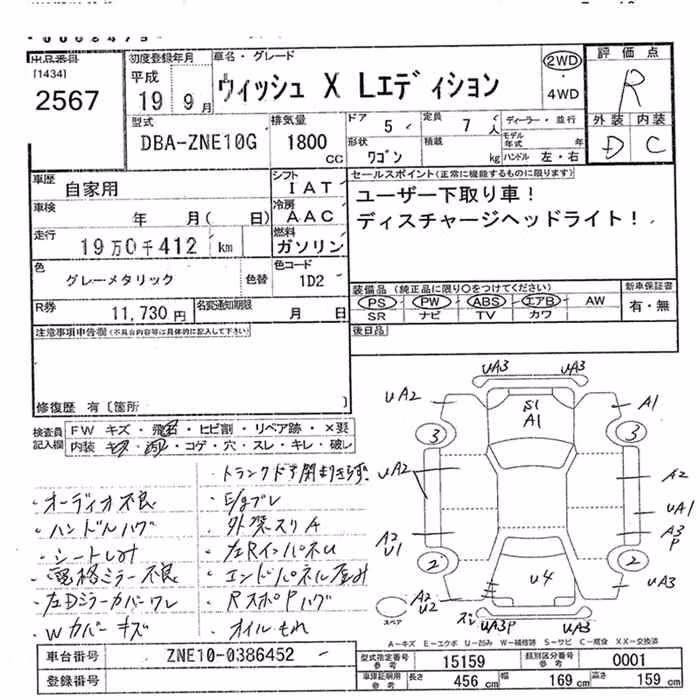 出品番号
[1434]
2567
初度登録年月
平成
19 9月
車名・グレード
ウィッシュ X Lエディション
2WD
・
4WD
評価点
R
外装 内装
D C
型式
DBA-ZNE10G
排気量
1800
CC
ドア 5
定員 7 人
ディーラー・並行
形状 ワゴン
積載 kg
モデル年式 年
ハンドル 左・右
車歴 自家用
シフト IAT
車検 年 月( 日)
冷房 AAC
走行 19万0千412 km
燃料 ガソリン
色 グレーメタリック 色替
色コード 1D2
R券 11,730円
名変通知期限 月 日
セールスポイント(正常に機能するものに限ります)
ユーザー下取り車!
ディスチャージヘッドライト!
装備品(純正品に限り○をつけてください)
PS PW ABS エアB AW
SR ナビ TV カワ
新車保証書
有・無
後日品
注意事項申告欄(不具合内容等は具体的に記入して下さい)
修復歴 有〔箇所 〕
検査員記入欄
FW キズ・飛石・ヒビ割・リペア跡・×要
内装 キズ・汚れ・コゲ・穴・スレ・キレ・破レ
・トランクドア閉まりきらず
・オーディオ不良
・E/gブレ
・ハンドルハゲ
・外装スリA
・シートしみ
・左RインパネU
・電格ミラー不良
・エンドパネル歪み
・左Dミラーカバーワレ
・RスポPハゲ
・Wカバーキズ
・オイルもれ
UA3 UA3
UA2
S1
A1
A1
3 3
UA2
A2
UA1
A2
U1
A3
P
2 2
U4
UA3
A2
U2
スペア
UA3P UA3
A-キズ E-エクボ U-凹み W-補修跡 S-サビ C-腐食 XX-交換済
車台番号 ZNE10-0386452
登録番号
型式指定番号 参考 15159
類別区分番号 参考 0001
車庫証明用 参考
長さ 456 cm
幅 169 cm
高さ 159 cm